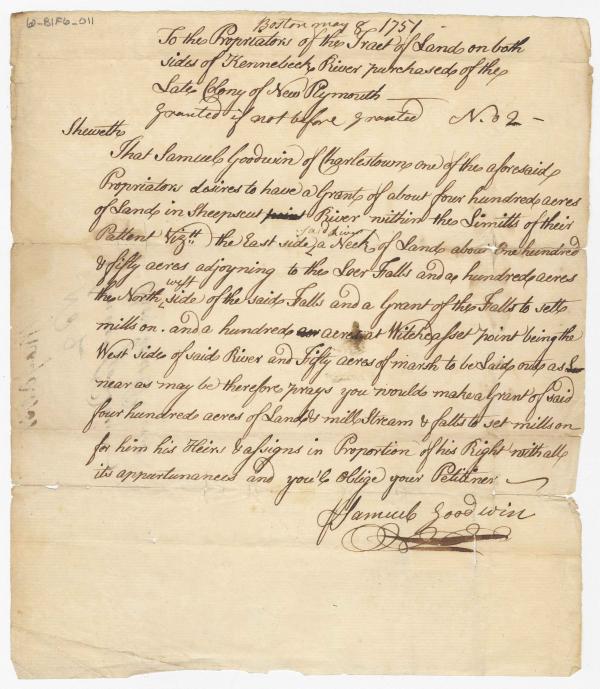 6-B1F6-011
Boston may 8 1751
To the Propriators of the Tract of Land on both
sides of Kennebeck River purchased of the
Late Colony of New Plymouth
Granted if not before granted No 2
Sheweth
That Samuel Goodwin of Charlestown one of the aforesaid
Propriators desires to have a Grant of about four hundred acres
of Land in Sheepscut point River within the Limitts of their
said River
Pattent Viz:tt the East side a Neck of Land about One hundred
& fifty acres adjoyning to the Loer Falls and a hundred acres
west
the North side of the said Falls and a Grant of the Falls to sett
mills on . and a hundred acres at Witcheasset point being the
West side of said River and Fifty acres of marsh to be Laid out as
near as may be therefore prays you would make a Grant of said
four hundred acres of Land & mill Stream & falls to set mills on
for him his Heirs & assigns in Proportion of his Right with all
its appurtunances and you'l Oblige your Petitner
Samuel Goodwin